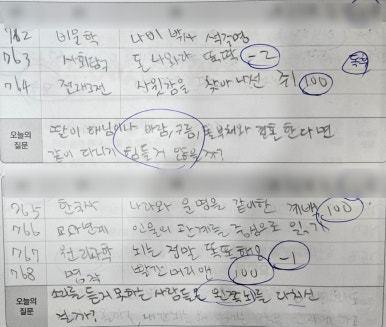 762 비문학 나비 박사 석주명
763 사회탐구 돈 나와라 뚝딱 -2
764 전래그림 사윗감을 찾아 나선 쥐 100
오늘의 질문
딸이 해님이나 바람, 구름, 돌부처와 결혼한다면
같이 다니기 힘들거 않을까?
765 한국사 나라와 운명을 같이한 계백 100
766 교과연계 인물의 관계는 중심으로 읽기
767 원리과학 뇌는 정말 똑똑해요 -1
768 명작 빨간 머리 앤 100
오늘의 질문
말을 듣기 못하는 사람들은 왼쪽 뇌를 다치신
걸까?